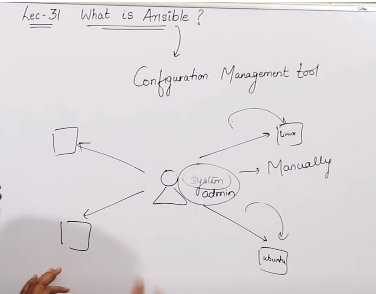 Lec-31 What is Ansible ?
Configuration Management tool
Linux
system
admin
Manually
ubuntu